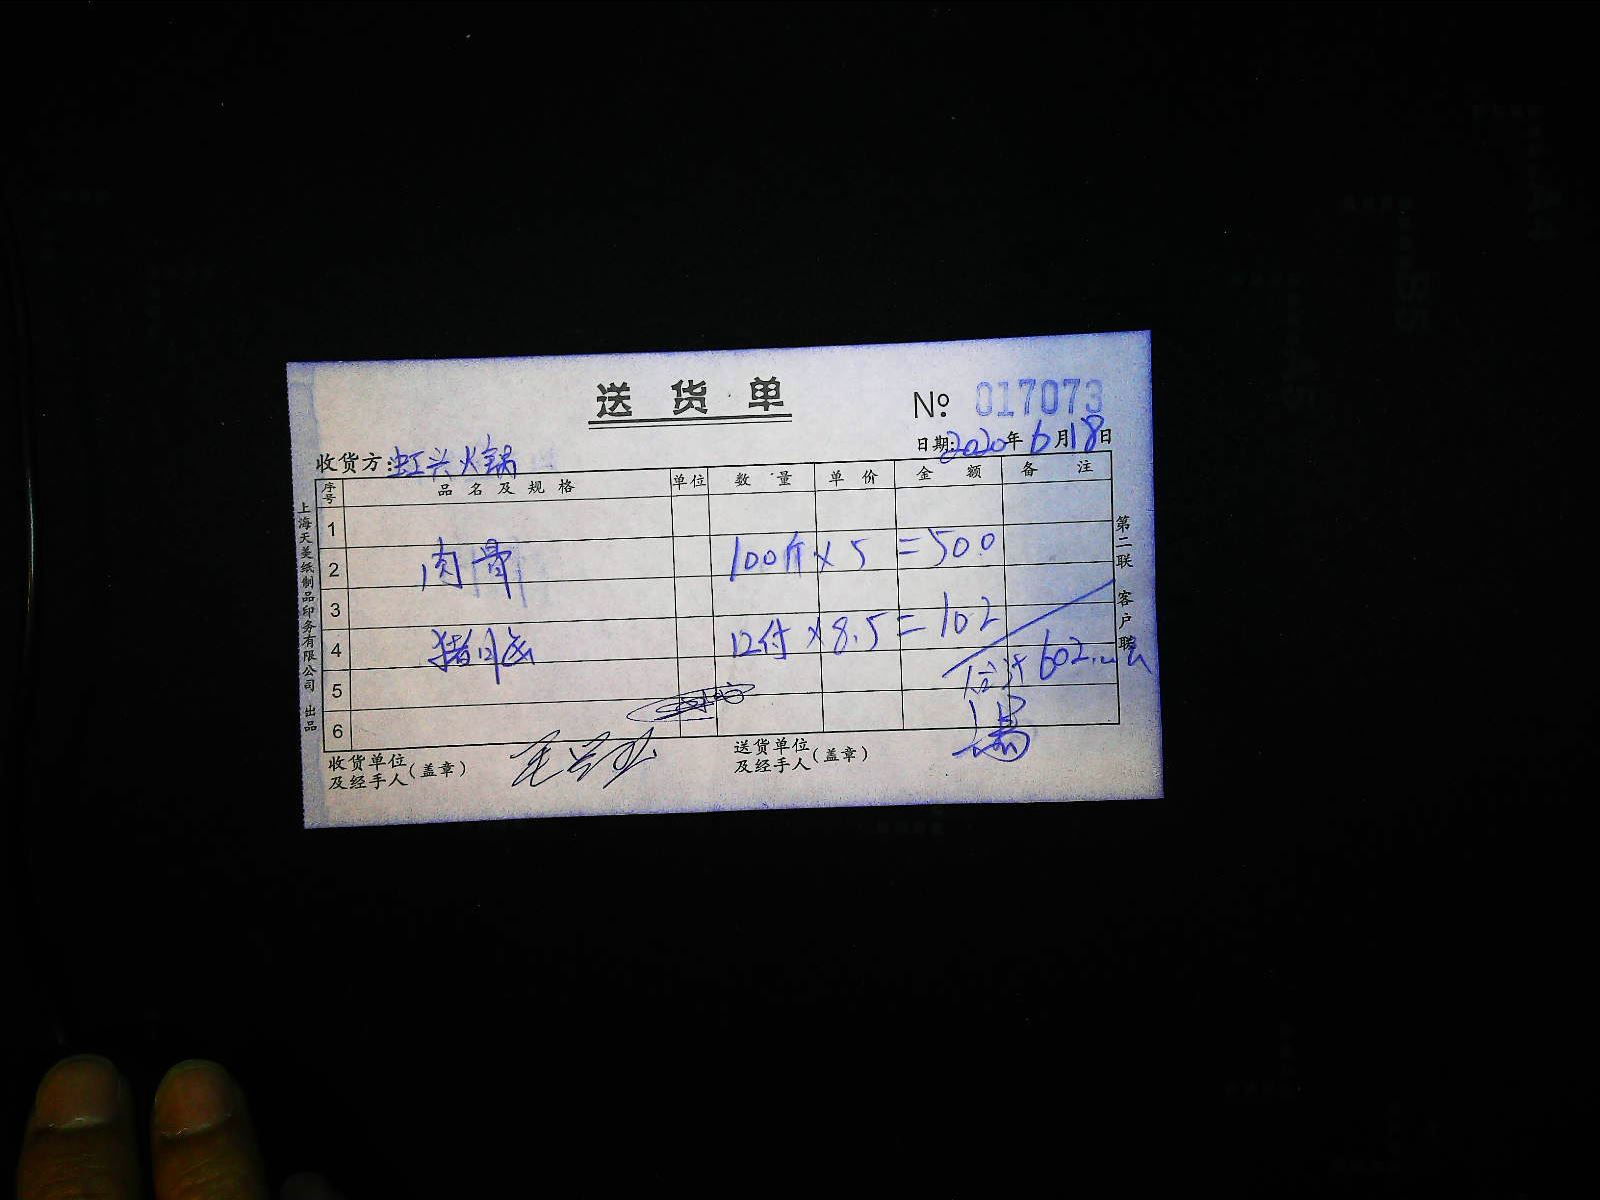 送货单
№ 017073
日期:2020年6月18日
收货方:虹兴火锅
序号 品名及规格 单位 数量 单价 金额 备注
1
2 肉骨 100斤 × 5 = 500
3
4 猪 12付 × 8.5 = 102
5 合计602.
6
收货单位及经手人(盖章)
送货单位及经手人(盖章)
上海天美纸制品印务有限公司 出品
第二联 客户联